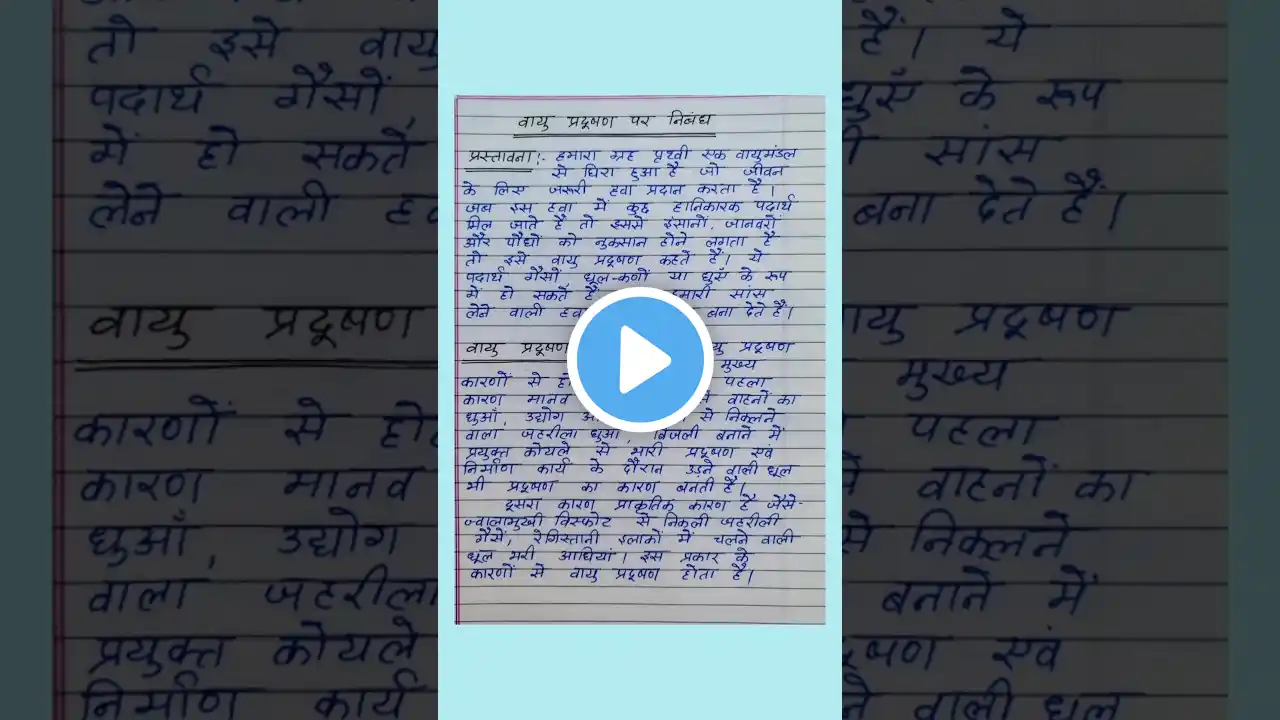 वायु प्रदूषण पर निबंध
प्रस्तावना :- हमारा ग्रह पृथ्वी एक वायुमंडल
से घिरा हुआ है जो जीवन
के लिए जरूरी हवा प्रदान करता है।
जब इस हवा में कुछ हानिकारक पदार्थ
मिल जाते हैं तो इससे इंसानों, जानवरों
और पौधों को नुकसान होने लगता है
तो इसे वायु प्रदूषण कहते हैं। ये
पदार्थ गैसों, धूल-कणों या धुएँ के रूप
में हो सकते हैं हमारी सांस
लेने वाली हवा बना देते हैं।
वायु प्रदूषण वायु प्रदूषण
मुख्य
कारणों से हो पहला
कारण मानव वाहनों का
धुआँ, उद्योग से निकलने
वाला जहरीला धुआँ, बिजली बनाने में
प्रयुक्त कोयले से भारी प्रदूषण एवं
निर्माण कार्य के दौरान उड़ने वाली धूल
भी प्रदूषण का कारण बनती है।
दूसरा कारण प्राकृतिक कारण है जैसे-
ज्वालामुखी विस्फोट से निकली जहरीली
गैसें, रेगिस्तानी इलाकों में चलने वाली
धूल भरी आंधियां। इस प्रकार के
कारणों से वायु प्रदूषण होता है।